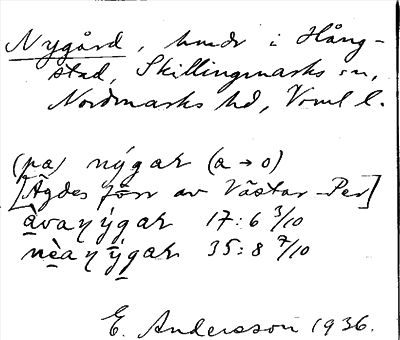 Nygård, hmdr i Hång-
stad, Skillingmarks sn,
Nordmarks hd, Vrml l.
(pa) nýgaꝛ (a → o)
[Ägdes förr av Västar-Per]
àvaŋ ýgaꝛ 17:6 3/10
nèaŋ ýgaꝛ 35:8 7/10
E. Andersson 1936.